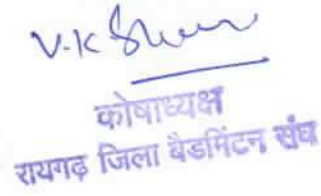 V.K
कोषाध्यक्ष
रायगढ़ जिला बैडमिंटन संघ